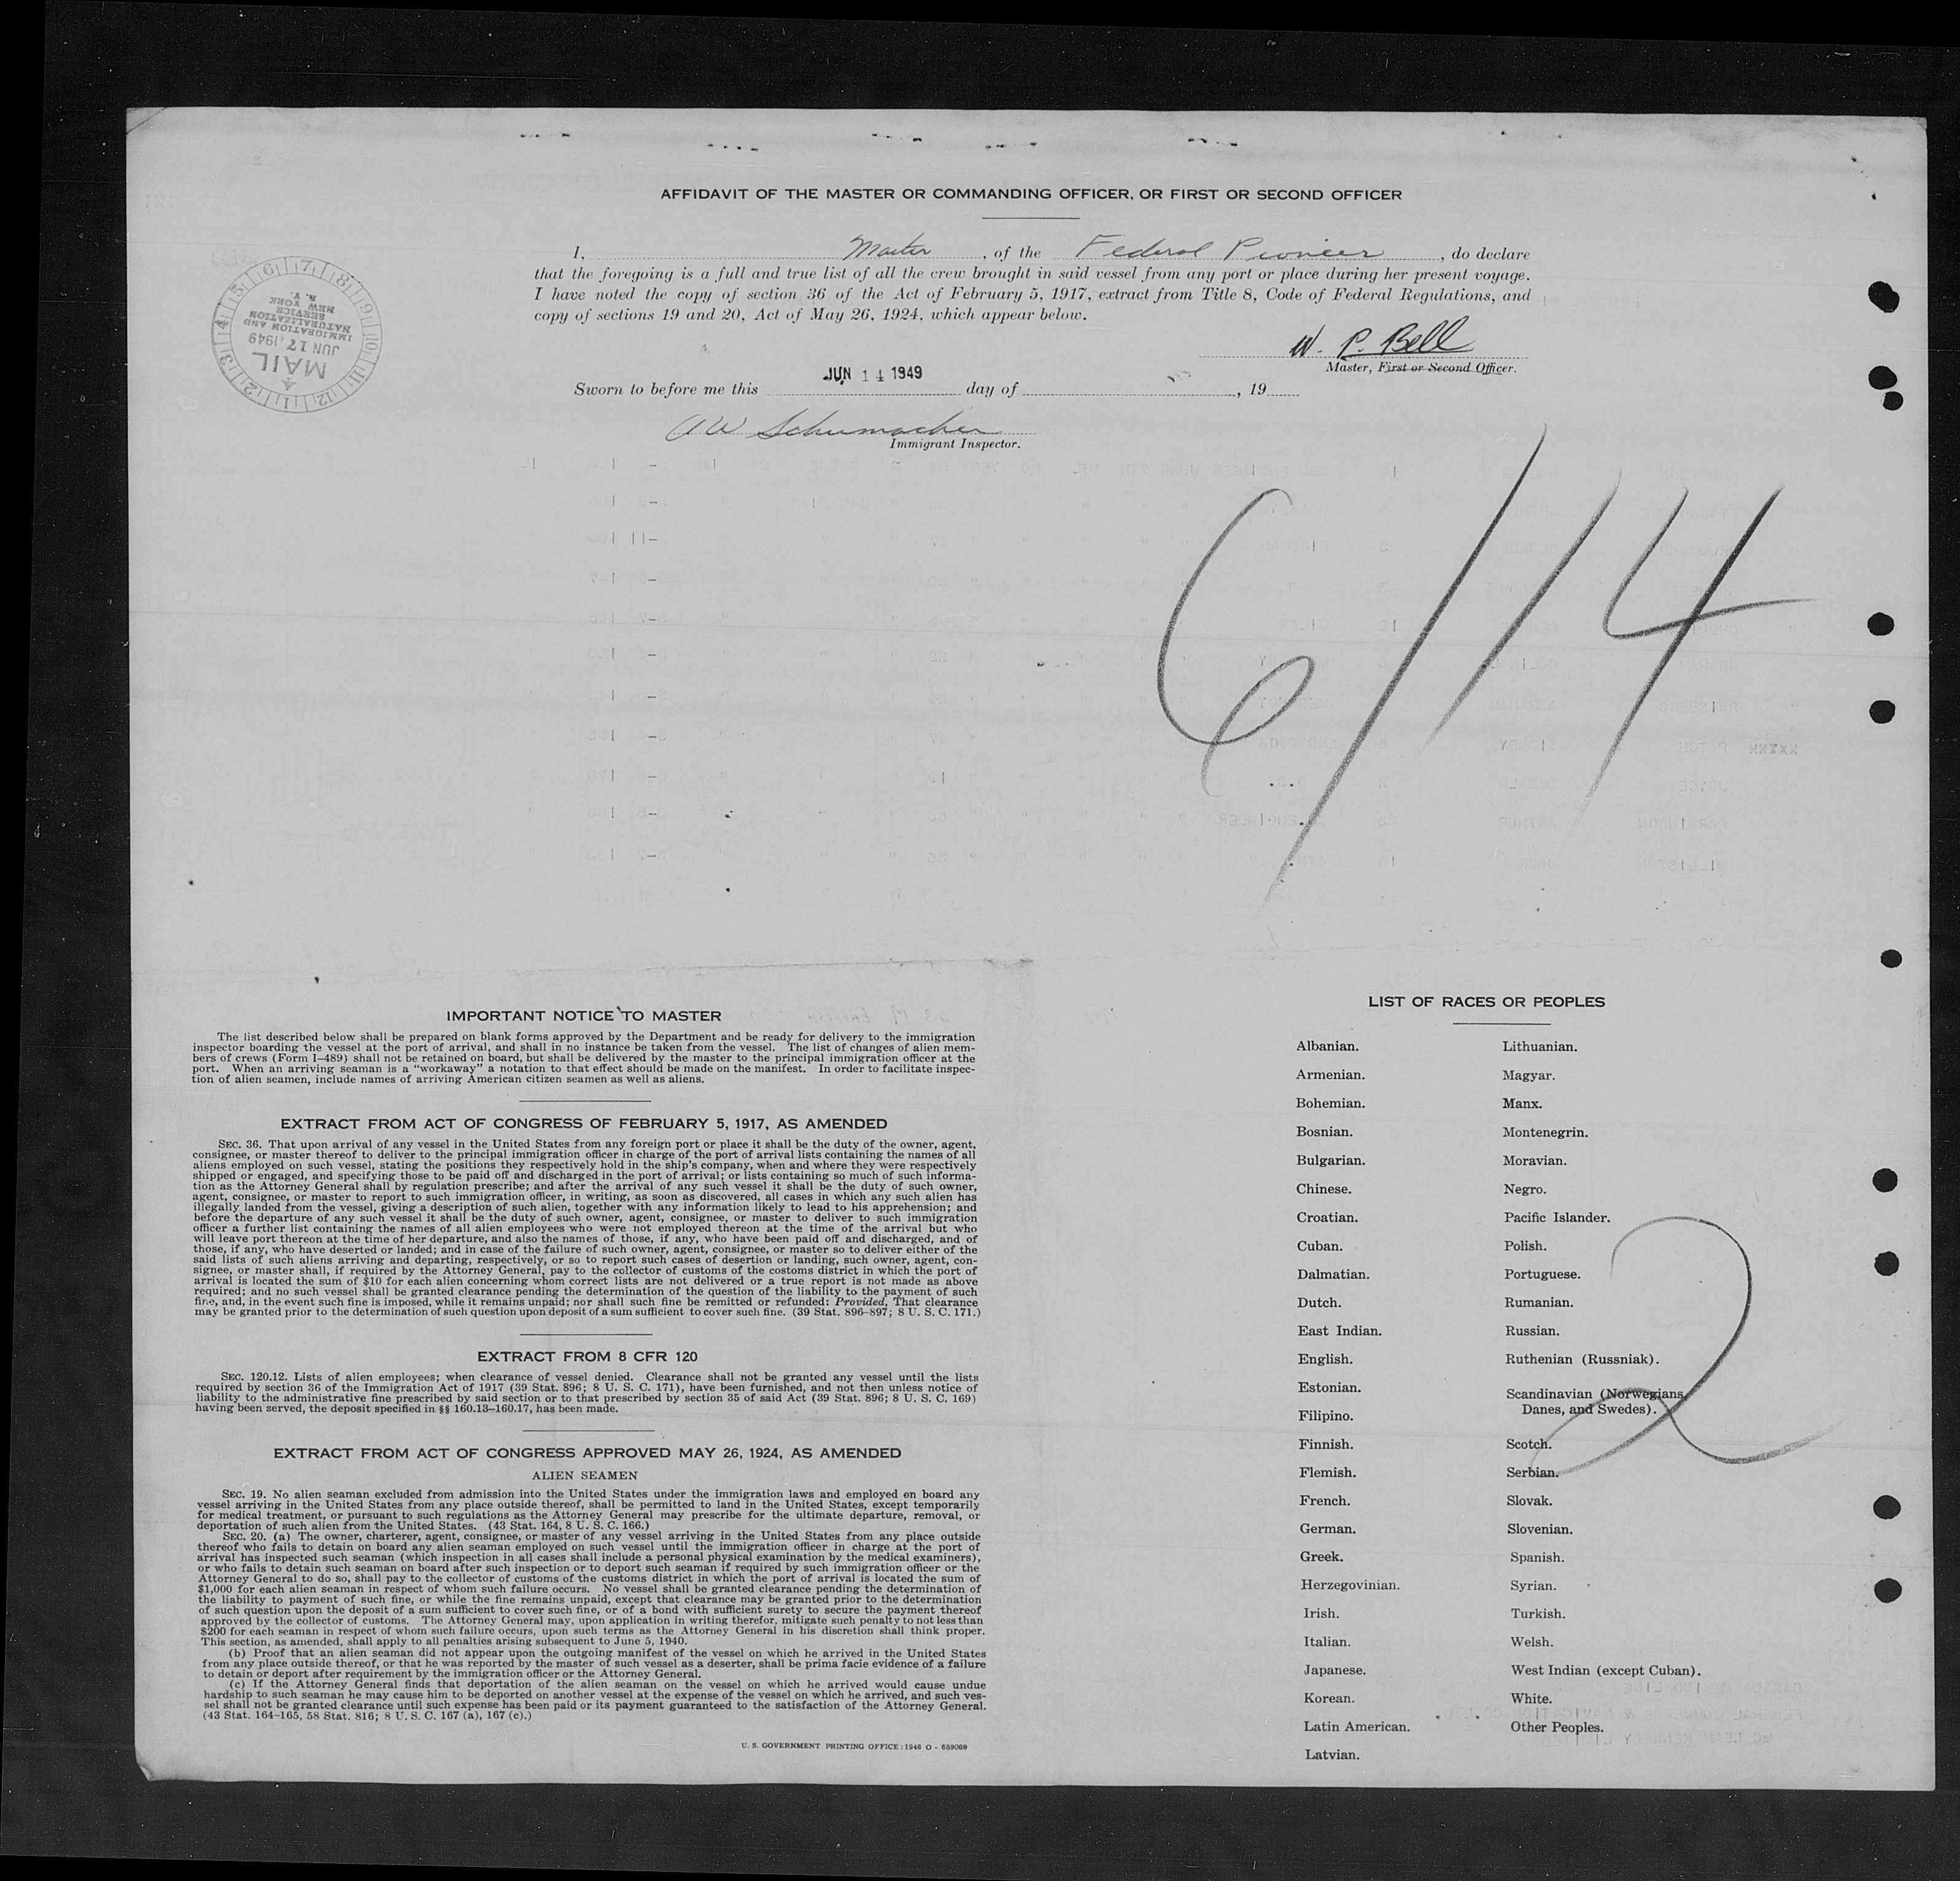 AFFIDAVIT OF THE MASTER OR COMMANDING OFFICER, OR FIRST OR SECOND OFFICER
I, Master, of the Federal Pioneer, do declare
that the foregoing is a full and true list of all the crew brought in said vessel from any port or place during her present voyage.
I have noted the copy of section 36 of the Act of February 5, 1917, extract from Title 8, Code of Federal Regulations, and
copy of sections 19 and 20, Act of May 26, 1924, which appear below.
W. P. Bell
Master, First or Second Officer.
JUN 14 1949
Sworn to before me this day of , 19
A W Schumacher
Immigrant Inspector.
MAIL
JUN 17, 1949
IMMIGRATION AND
NATURALIZATION
SERVICE
NEW YORK
N. Y.
1 2 3 4 5 6 7 8 9 10 11 12
6/14
IMPORTANT NOTICE TO MASTER
The list described below shall be prepared on blank forms approved by the Department and be ready for delivery to the immigration
inspector boarding the vessel at the port of arrival, and shall in no instance be taken from the vessel. The list of changes of alien mem-
bers of crews (Form I–489) shall not be retained on board, but shall be delivered by the master to the principal immigration officer at the
port. When an arriving seaman is a "workaway" a notation to that effect should be made on the manifest. In order to facilitate inspec-
tion of alien seamen, include names of arriving American citizen seamen as well as aliens.
EXTRACT FROM ACT OF CONGRESS OF FEBRUARY 5, 1917, AS AMENDED
SEC. 36. That upon arrival of any vessel in the United States from any foreign port or place it shall be the duty of the owner, agent,
consignee, or master thereof to deliver to the principal immigration officer in charge of the port of arrival lists containing the names of all
aliens employed on such vessel, stating the positions they respectively hold in the ship's company, when and where they were respectively
shipped or engaged, and specifying those to be paid off and discharged in the port of arrival; or lists containing so much of such informa-
tion as the Attorney General shall by regulation prescribe; and after the arrival of any such vessel it shall be the duty of such owner,
agent, consignee, or master to report to such immigration officer, in writing, as soon as discovered, all cases in which any such alien has
illegally landed from the vessel, giving a description of such alien, together with any information likely to lead to his apprehension; and
before the departure of any such vessel it shall be the duty of such owner, agent, consignee, or master to deliver to such immigration
officer a further list containing the names of all alien employees who were not employed thereon at the time of the arrival but who
will leave port thereon at the time of her departure, and also the names of those, if any, who have been paid off and discharged, and of
those, if any, who have deserted or landed; and in case of the failure of such owner, agent, consignee, or master so to deliver either of the
said lists of such aliens arriving and departing, respectively, or so to report such cases of desertion or landing, such owner, agent, con-
signee, or master shall, if required by the Attorney General, pay to the collector of customs of the customs district in which the port of
arrival is located the sum of $10 for each alien concerning whom correct lists are not delivered or a true report is not made as above
required; and no such vessel shall be granted clearance pending the determination of the question of the liability to the payment of such
fine, and, in the event such fine is imposed, while it remains unpaid; nor shall such fine be remitted or refunded: Provided, That clearance
may be granted prior to the determination of such question upon deposit of a sum sufficient to cover such fine. (39 Stat. 896–897; 8 U. S. C. 171.)
EXTRACT FROM 8 CFR 120
SEC. 120.12. Lists of alien employees; when clearance of vessel denied. Clearance shall not be granted any vessel until the lists
required by section 36 of the Immigration Act of 1917 (39 Stat. 896; 8 U. S. C. 171), have been furnished, and not then unless notice of
liability to the administrative fine prescribed by said section or to that prescribed by section 35 of said Act (39 Stat. 896; 8 U. S. C. 169)
having been served, the deposit specified in §§ 160.13–160.17, has been made.
EXTRACT FROM ACT OF CONGRESS APPROVED MAY 26, 1924, AS AMENDED
ALIEN SEAMEN
SEC. 19. No alien seaman excluded from admission into the United States under the immigration laws and employed on board any
vessel arriving in the United States from any place outside thereof, shall be permitted to land in the United States, except temporarily
for medical treatment, or pursuant to such regulations as the Attorney General may prescribe for the ultimate departure, removal, or
deportation of such alien from the United States. (43 Stat. 164, 8 U. S. C. 166.)
SEC. 20. (a) The owner, charterer, agent, consignee, or master of any vessel arriving in the United States from any place outside
thereof who fails to detain on board any alien seaman employed on such vessel until the immigration officer in charge at the port of
arrival has inspected such seaman (which inspection in all cases shall include a personal physical examination by the medical examiners),
or who fails to detain such seaman on board after such inspection or to deport such seaman if required by such immigration officer or the
Attorney General to do so, shall pay to the collector of customs of the customs district in which the port of arrival is located the sum of
$1,000 for each alien seaman in respect of whom such failure occurs. No vessel shall be granted clearance pending the determination of
the liability to payment of such fine, or while the fine remains unpaid, except that clearance may be granted prior to the determination
of such question upon the deposit of a sum sufficient to cover such fine, or of a bond with sufficient surety to secure the payment thereof
approved by the collector of customs. The Attorney General may, upon application in writing therefor, mitigate such penalty to not less than
$200 for each seaman in respect of whom such failure occurs, upon such terms as the Attorney General in his discretion shall think proper.
This section, as amended, shall apply to all penalties arising subsequent to June 5, 1940.
(b) Proof that an alien seaman did not appear upon the outgoing manifest of the vessel on which he arrived in the United States
from any place outside thereof, or that he was reported by the master of such vessel as a deserter, shall be prima facie evidence of a failure
to detain or deport after requirement by the immigration officer or the Attorney General.
(c) If the Attorney General finds that deportation of the alien seaman on the vessel on which he arrived would cause undue
hardship to such seaman he may cause him to be deported on another vessel at the expense of the vessel on which he arrived, and such ves-
sel shall not be granted clearance until such expense has been paid or its payment guaranteed to the satisfaction of the Attorney General.
(43 Stat. 164–165, 58 Stat. 816; 8 U. S. C. 167 (a), 167 (c).)
U. S. GOVERNMENT PRINTING OFFICE : 1946 O - 689069
LIST OF RACES OR PEOPLES
Albanian.
Armenian.
Bohemian.
Bosnian.
Bulgarian.
Chinese.
Croatian.
Cuban.
Dalmatian.
Dutch.
East Indian.
English.
Estonian.
Filipino.
Finnish.
Flemish.
French.
German.
Greek.
Herzegovinian.
Irish.
Italian.
Japanese.
Korean.
Latin American.
Latvian.
Lithuanian.
Magyar.
Manx.
Montenegrin.
Moravian.
Negro.
Pacific Islander.
Polish.
Portuguese.
Rumanian.
Russian.
Ruthenian (Russniak).
Scandinavian (Norwegians,
Danes, and Swedes).
Scotch.
Serbian.
Slovak.
Slovenian.
Spanish.
Syrian.
Turkish.
Welsh.
West Indian (except Cuban).
White.
Other Peoples.
2